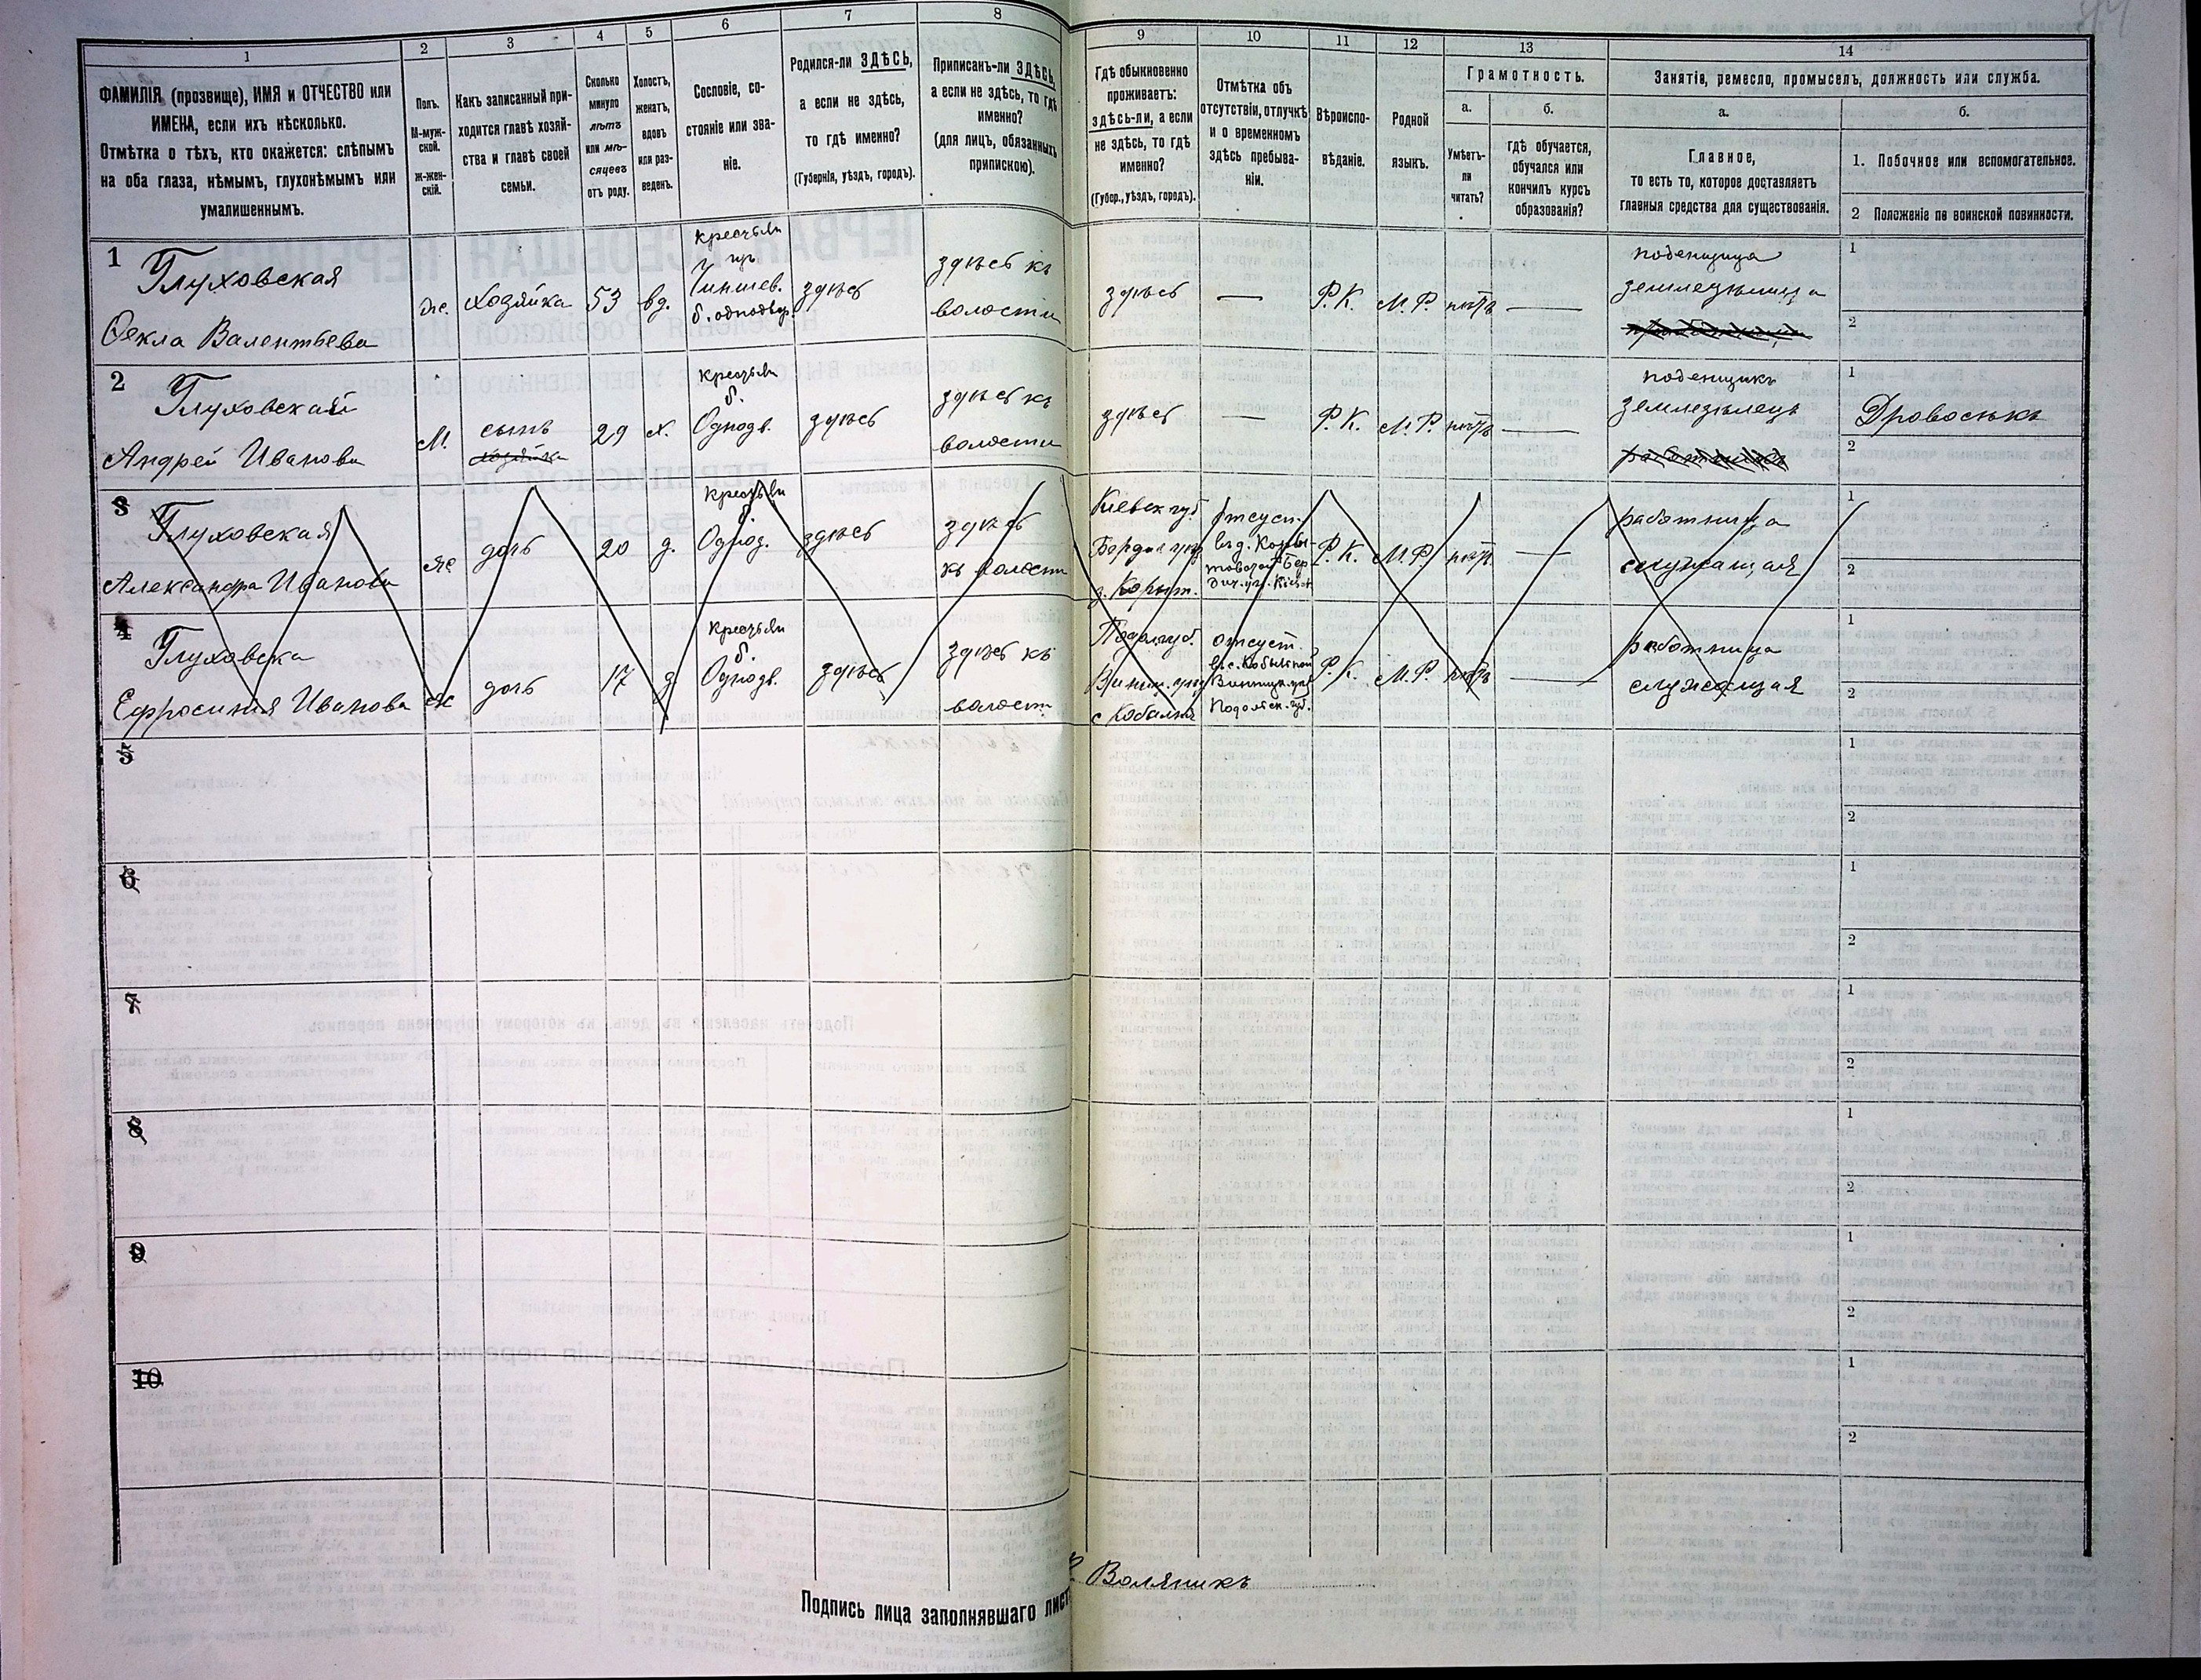 1
2
3
4
5
6
7
8
9
10
11
12
13
14
ФАМИЛІЯ, (прозвище), ИМЯ и ОТЧЕСТВО или
ИМЕНА, если ихъ нѣсколько.
Отмѣтка о тѣхъ, кто окажется: слѣпымъ
на оба глаза, нѣмымъ, глухонѣмымъ или
умалишеннымъ.
Полъ.
М-муж-
ской.
ж-жен-
скій.
Какъ записанный при-
ходится главѣ хозяй-
ства и главѣ своей
семьи.
Сколько
минуло
лѣтъ
или мѣ-
сяцевъ
отъ роду.
Холостъ,
женатъ,
вдовъ
или раз-
веденъ.
Сословіе, со-
стояніе или зва-
ніе.
Родился-ли ЗДѢСЬ,
а если не здѣсь,
то гдѣ именно?
(Губернія, уѣздъ, городъ).
Приписанъ-ли ЗДѢСЬ,
а если не здѣсь, то гдѣ
именно?
(для лицъ, обязанныхъ
припискою).
Гдѣ обыкновенно
проживаетъ:
здѣсь-ли, а если
не здѣсь, то гдѣ
именно?
(Губер., уѣздъ, городъ).
Отмѣтка объ
отсутствіи, отлучкѣ
и о временномъ
здѣсь пребыва-
ніи.
Вѣроиспо-
вѣданіе.
Родной
языкъ.
Грамотность.
а.
Умѣетъ-
ли
читать?
б.
гдѣ обучается,
обучался или
кончилъ курсъ
образованія?
Занятіе, ремесло, промыселъ, должность или служба.
а.
Главное,
то есть то, которое доставляетъ
главныя средства для существованія.
б.
1. Побочное или вспомогательное.
2 Положеніе по воинской повинности.
1
Глуховская
Фекла Валентьева
ж.
хозяйка
53
вд.
б. одподвор.
здѣсь
здѣсь къ
волости
здѣсь
—
Р. К.
М. Р.
нѣтъ
—
поденщица
земледѣлица
1
2
2
Глуховскай
Андрей Иванова
М.
сынъ
хозяйка
29
х.
б.
Одподв.
здѣсь
здѣсь къ
волости
здѣсь
—
Р. К.
М. Р.
нѣтъ
—
поденщикъ
земледѣлецъ
1
Дровосѣкъ
2
3
Глуховская
Александра Иванова
ж
дочь
20
д.
здѣсь
здѣсь
къ волости
Кіевск губ
Р. К.
М. Р.
нѣтъ
—
работница
служащая
1
2
4
Глуховска
Ефросинія Иванова
ж
дочь
17
д
б.
Одподв.
здѣсь
здѣсь къ
волости
Подол губ.
Винниц. у.
отсутст.
Винницк. у.
Подольск. губ.
Р. К.
М. Р
нѣтъ
—
работница
служащая
1
2
5
1
2
6
1
2
7
1
2
8
1
2
9
1
2
10
1
2
Подпись лица заполнявшаго лист
Воляникъ